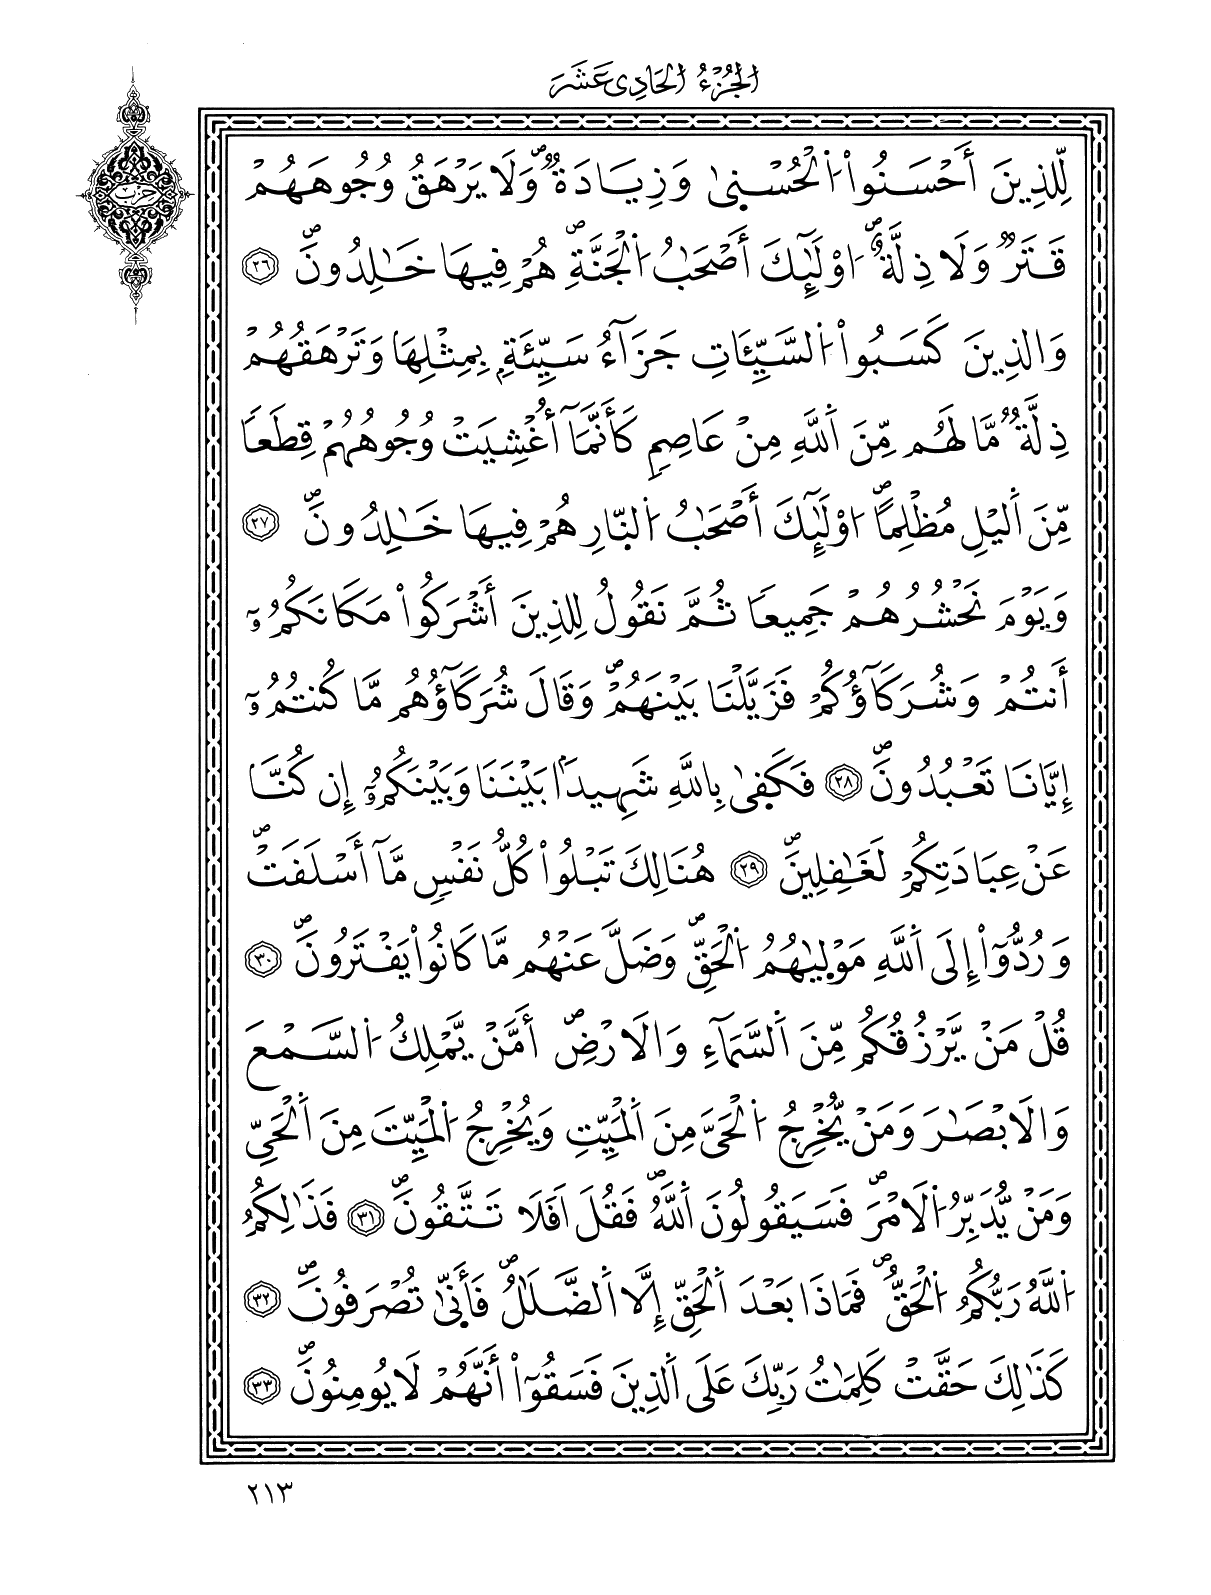 الجزء الحادي عشر
حزب
لِّلذِينَ أَحْسَنُواْ اُ۬لْحُسْن۪يٰ وَزِيَادَةٞۖ وَلَا يَرْهَقُ وُجُوهَهُمْ
قَتَرٞ وَلَا ذِلَّةٌۖ ا۟وْلَٰٓئِكَ أَصْحَٰبُ اُ۬لْجَنَّةِۖ هُمْ فِيهَا خَٰلِدُونَۖ ٢٦
وَالذِينَ كَسَبُواْ اُ۬لسَّيِّـَٔاتِ جَزَآءُ سَيِّئَةِۢ بِمِثْلِهَا وَتَرْهَقُهُمْ
ذِلَّةٞ مَّا لَهُم مِّنَ اَ۬للَّهِ مِنْ عَاصِمٖ كَأَنَّمَآ أُغْشِيَتْ وُجُوهُهُمْ قِطَعاٗ
مِّنَ اَ۬ليْلِ مُظْلِماًۖ ا۟وْلَٰٓئِكَ أَصْحَٰبُ اُ۬لنّ۪ارِ هُمْ فِيهَا خَٰلِدُونَۖ ٢٧
وَيَوْمَ نَحْشُرُهُمْ جَمِيعاٗ ثُمَّ نَقُولُ لِلذِينَ أَشْرَكُواْ مَكَانَكُمُۥٓ
أَنتُمْ وَشُرَكَآؤُكُمْ فَزَيَّلْنَا بَيْنَهُمْۖ وَقَالَ شُرَكَآؤُهُم مَّا كُنتُمُۥٓ
إِيَّانَا تَعْبُدُونَۖ ٢٨ فَكَف۪يٰ بِاللَّهِ شَهِيداَۢ بَيْنَنَا وَبَيْنَكُمُۥٓ إِن كُنَّا
عَنْ عِبَادَتِكُمْ لَغَٰفِلِينَۖ ٢٩ هُنَالِكَ تَبْلُواْ كُلُّ نَفْسٖ مَّآ أَسْلَفَتْۖ
وَرُدُّوٓاْ إِلَى اَ۬للَّهِ مَوْل۪يٰهُمُ اُ۬لْحَقِّۖ وَضَلَّ عَنْهُم مَّا كَانُواْ يَفْتَرُونَۖ ٣٠
قُلْ مَنْ يَّرْزُقُكُم مِّنَ اَ۬لسَّمَآءِ وَالَارْضِۖ أَمَّنْ يَّمْلِكُ اُ۬لسَّمْعَ
وَالَابْصَٰرَ وَمَنْ يُّخْرِجُ اُ۬لْحَيَّ مِنَ اَ۬لْمَيِّتِ وَيُخْرِجُ اُ۬لْمَيِّتَ مِنَ اَ۬لْحَيِّ
وَمَنْ يُّدَبِّرُ اُ۬لَامْرَۖ فَسَيَقُولُونَ اَ۬للَّهُۖ فَقُلَ اَفَلَا تَتَّقُونَۖ ٣١ فَذَٰلِكُمُ
اُ۬للَّهُ رَبُّكُمُ اُ۬لْحَقُّۖ فَمَاذَا بَعْدَ اَ۬لْحَقِّ إِلَّا اَ۬لضَّلَٰلُۖ فَأَنّ۪يٰ تُصْرَفُونَۖ ٣٢
كَذَٰلِكَ حَقَّتْ كَلِمَٰتُ رَبِّكَ عَلَى اَ۬لذِينَ فَسَقُوٓاْ أَنَّهُمْ لَا يُومِنُونَۖ ٣٣
٢١٣